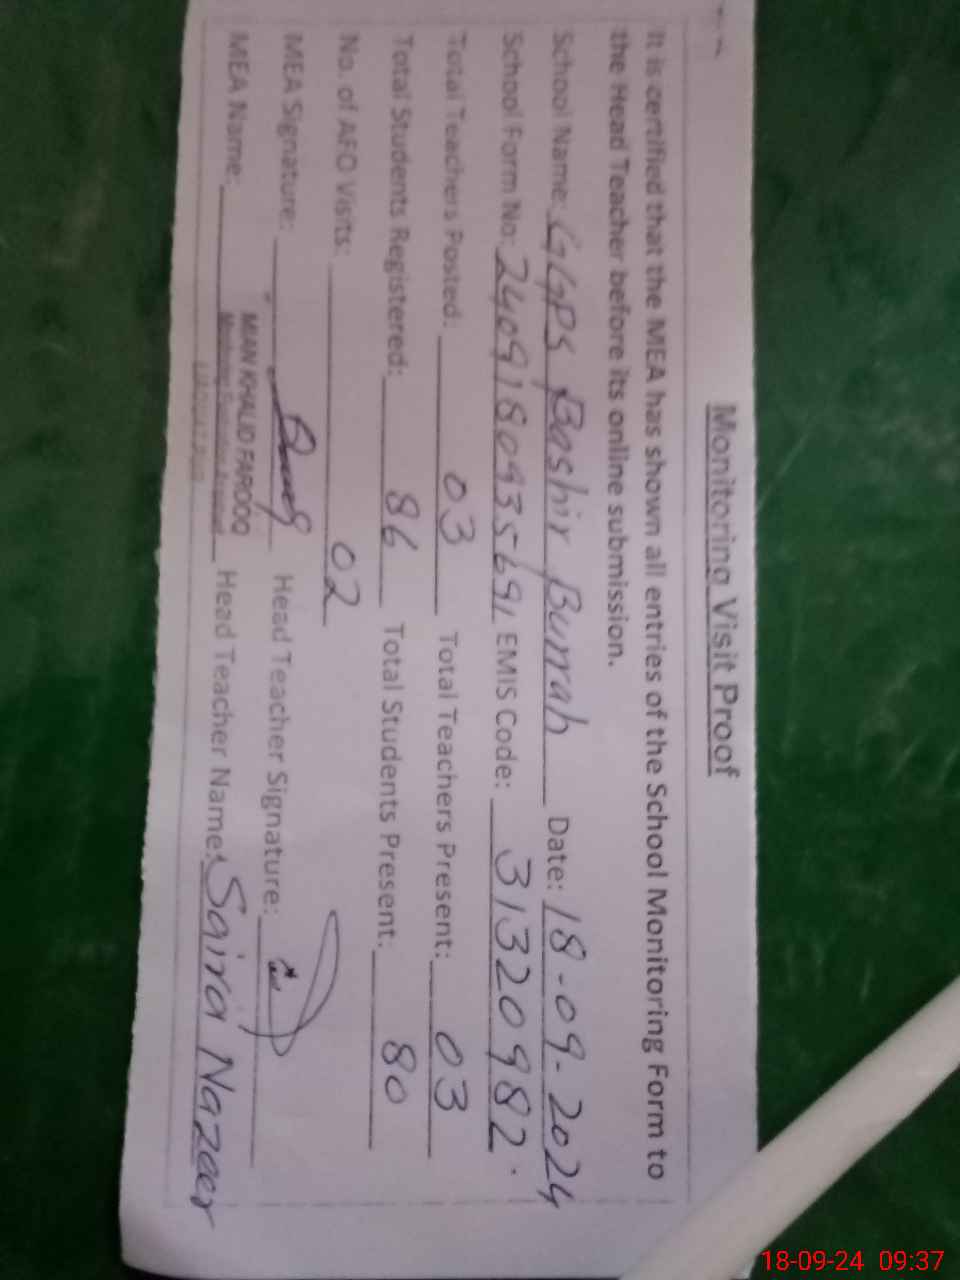 Monitoring Visit Proof
It is certified that the MEA has shown all entries of the School Monitoring Form to
the Head Teacher before its online submission.
School Name: GGPS Bashir Bunah Date: 18-09-2024
School Form No: 2409180935691 EMIS Code: 31320982.
Total Teachers Posted: 03 Total Teachers Present: 03
Total Students Registered: 86 Total Students Present: 80
No. of AEO Visits: 02
MEA Signature: Head Teacher Signature:
MEA Name: MIAN KHALID FAROOQ Head Teacher Name: Saira Nazeer
18-09-24 09:37